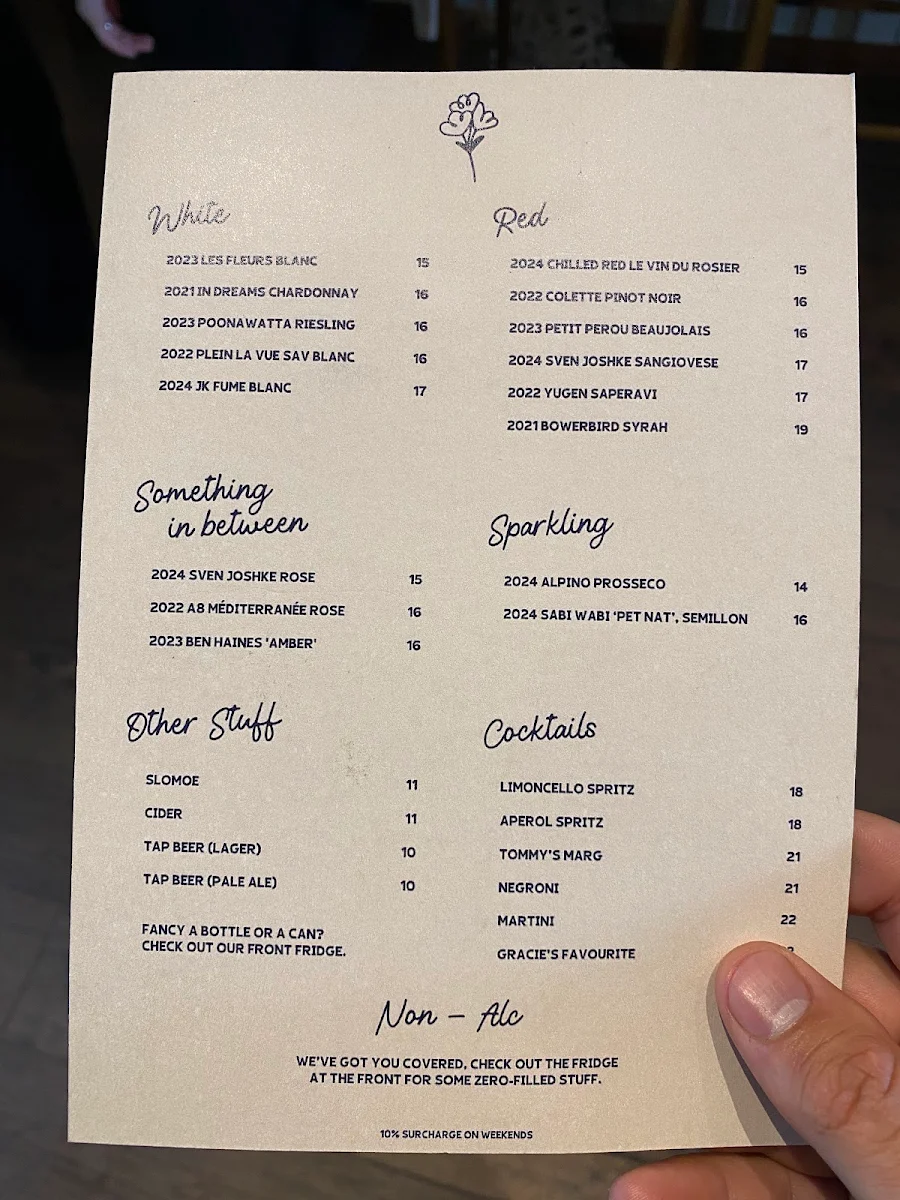 White
2023 LES FLEURS BLANC 15
2021 IN DREAMS CHARDONNAY 16
2023 POONAWATTA RIESLING 16
2022 PLEIN LA VUE SAV BLANC 16
2024 JK FUME BLANC 17
Red
2024 CHILLED RED LE VIN DU ROSIER 15
2022 COLETTE PINOT NOIR 16
2023 PETIT PEROU BEAUJOLAIS 16
2024 SVEN JOSHKE SANGIOVESE 17
2022 YUGEN SAPERAVI 17
2021 BOWERBIRD SYRAH 19
Something
in between
2024 SVEN JOSHKE ROSE 15
2022 A8 MÉDITERRANÉE ROSE 16
2023 BEN HAINES 'AMBER' 16
Sparkling
2024 ALPINO PROSSECO 14
2024 SABI WABI 'PET NAT', SEMILLON 16
Other Stuff
SLOMOE 11
CIDER 11
TAP BEER (LAGER) 10
TAP BEER (PALE ALE) 10
FANCY A BOTTLE OR A CAN?
CHECK OUT OUR FRONT FRIDGE.
Cocktails
LIMONCELLO SPRITZ 18
APEROL SPRITZ 18
TOMMY'S MARG 21
NEGRONI 21
MARTINI 22
GRACIE'S FAVOURITE
Non – Alc
WE'VE GOT YOU COVERED, CHECK OUT THE FRIDGE
AT THE FRONT FOR SOME ZERO-FILLED STUFF.
10% SURCHARGE ON WEEKENDS